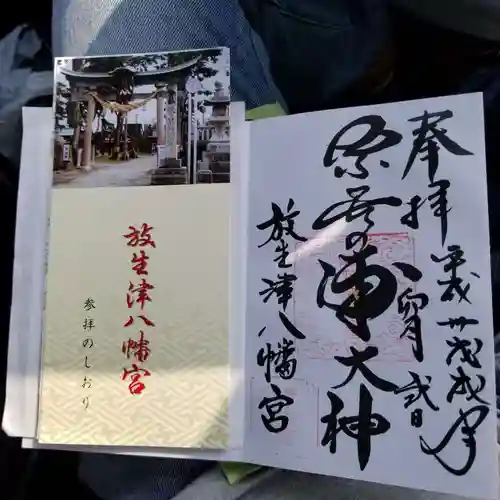 放生津八幡宮
参拝のしおり
奉拝
平成卅戊戌年
卯月弐日
奈呉の浦大神
放生津八幡宮